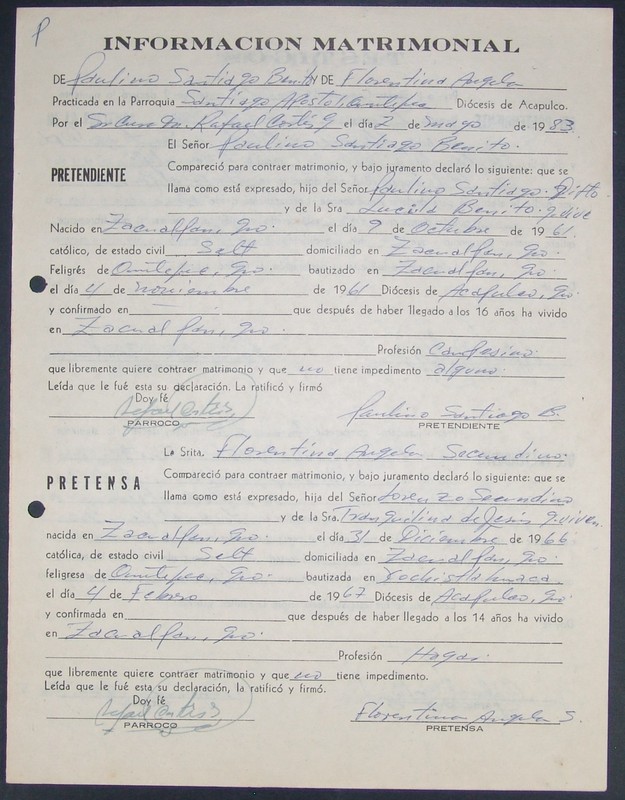 P
INFORMACION MATRIMONIAL
DE Paulino Santiago Benito Y DE Florentina Angela
Practicada en la Parroquia Santiago Apostol Cuilapa Diócesis de Acapulco.
Por el Sr. Cura Dn. Rafael Cortés G el día 2 de mayo de 1983.
El Señor Paulino Santiago Benito.
PRETENDIENTE
Compareció para contraer matrimonio, y bajo juramento declaró lo siguiente: que se
llama como está expresado, hijo del Señor Paulino Santiago. Difto
y de la Sra Lucila Benito. q. vive
Nacido en Zacualpan, Gro. el día 9 de Octubre de 1961.
católico, de estado civil Solt domiciliado en Zacualpan, Gro.
Feligrés de Gro. bautizado en Zacualpan, Gro.
el día 4 de noviembre de 1961 Diócesis de Acapulco, Gro.
y confirmado en que después de haber llegado a los 16 años ha vivido
en Zacualpan, Gro
Profesión Campesino.
que libremente quiere contraer matrimonio y que no tiene impedimento alguno.
Leída que le fué esta su declaración. La ratificó y firmó
Doy fé
Rafael Cortés G
PARROCO
Paulino Santiago B.
PRETENDIENTE
La Srita. Florentina Angela Secundino.
PRETENSA
Compareció para contraer matrimonio, y bajo juramento declaró lo siguiente: que se
llama como está expresado, hija del Señor Lorenzo Secundino
y de la Sra. Tranquilina de Jesús q. viven.
nacida en Zacualpan, Gro. el día 31 de Diciembre de 1966
católica, de estado civil Solt domiciliada en Zacualpan, Gro.
feligresa de Gro. bautizada en Xochistlahuaca
el día 4 de Febrero de 1967 Diócesis de Acapulco, Gro
y confirmada en que después de haber llegado a los 14 años ha vivido
en Zacualpan, Gro.
Profesión Hogar.
que libremente quiere contraer matrimonio y que no tiene impedimento.
Leída que le fué esta su declaración, la ratificó y firmó.
Doy fé
Rafael Cortés G
PARROCO
Florentina Angela S.
PRETENSA